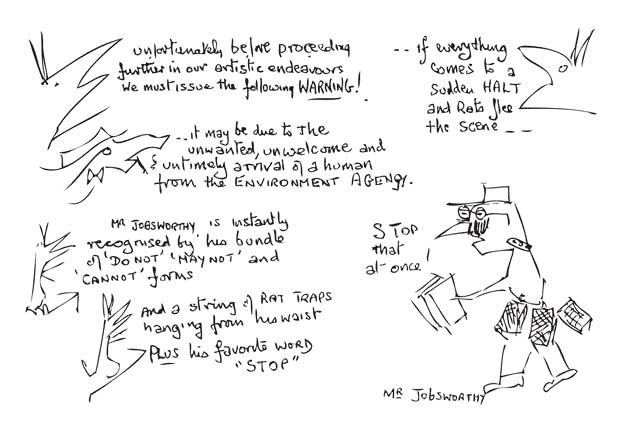 unfortunately before proceeding
further in our artistic endeavours
we must issue the following WARNING!
-- if everything
comes to a
sudden HALT
and Rats flee
the scene --
...it may be due to the
unwanted, unwelcome and
& untimely arrival of a human
from the ENVIRONMENT AGENCY.
MR JOBSWORTHY is instantly
recognised by his bundle
of 'DO NOT' 'MAY NOT' and
'CANNOT' forms
And a string of RAT TRAPS
hanging from his waist
PLUS his favorite WORD
"STOP"
STOP
that
at once
MR JOBSWORTHY